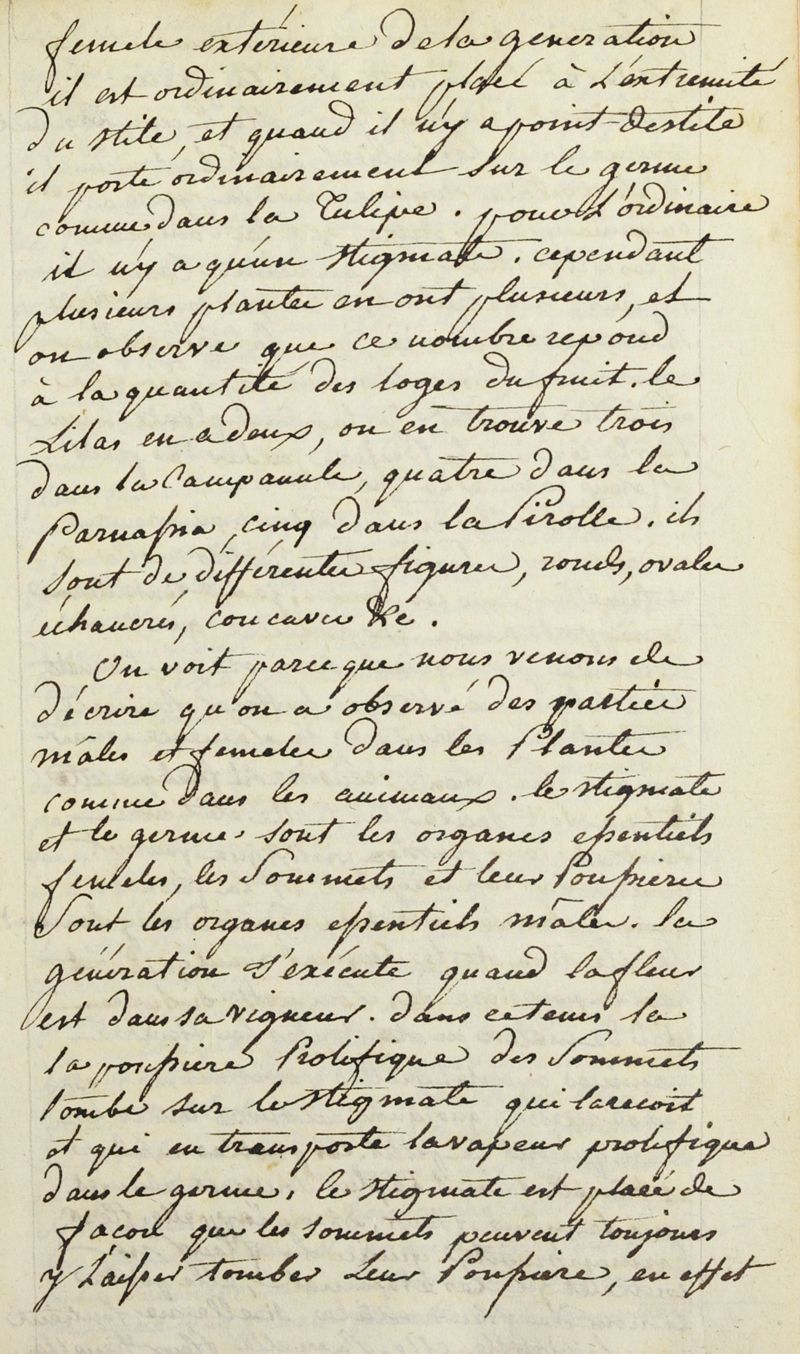 femele extérieure de la generation
il est ordinairement placé à L'extremité
du stile, et quand il n'y a point de stile
il porte ordinairement sur le germe
comme dans la Tulipe. pour L'ordinaire
il n'y a qu'un stigmate. cependant
plusieurs plantes en ont plusieurs, et
on observe que ce nombre repond
à la quantité des loges du fruit. le
Lilas en a deux, on en trouve trois
dans la Campanule, quatre dans la
Parnassia, cinq dans la Pirolle. ils
sont de différentes figures, ronds, ovales
échancrés, concaves &c.
On voit parce que nous venons de
décrire qu'on a observé des parties
mâles et femeles dans les Plantes
comme dans les animaux. le stigmate
et le germe sont les organes essentiels
femeles, les Sommets et leur Poussiere
Sont les organes essentiels mâles. la
génération s'exécute quand la fleur
est dans sa vigueur. dans ce tems la
la poussiere Prolifique des Sommets
tombe sur le stigmate qui la recoit
et qui en transporte la vapeur prolifique
dans le germe, le stigmate est placé de
façon que les sommets peuvent toujours
y Laisser tomber Leur Poussiere, en effet